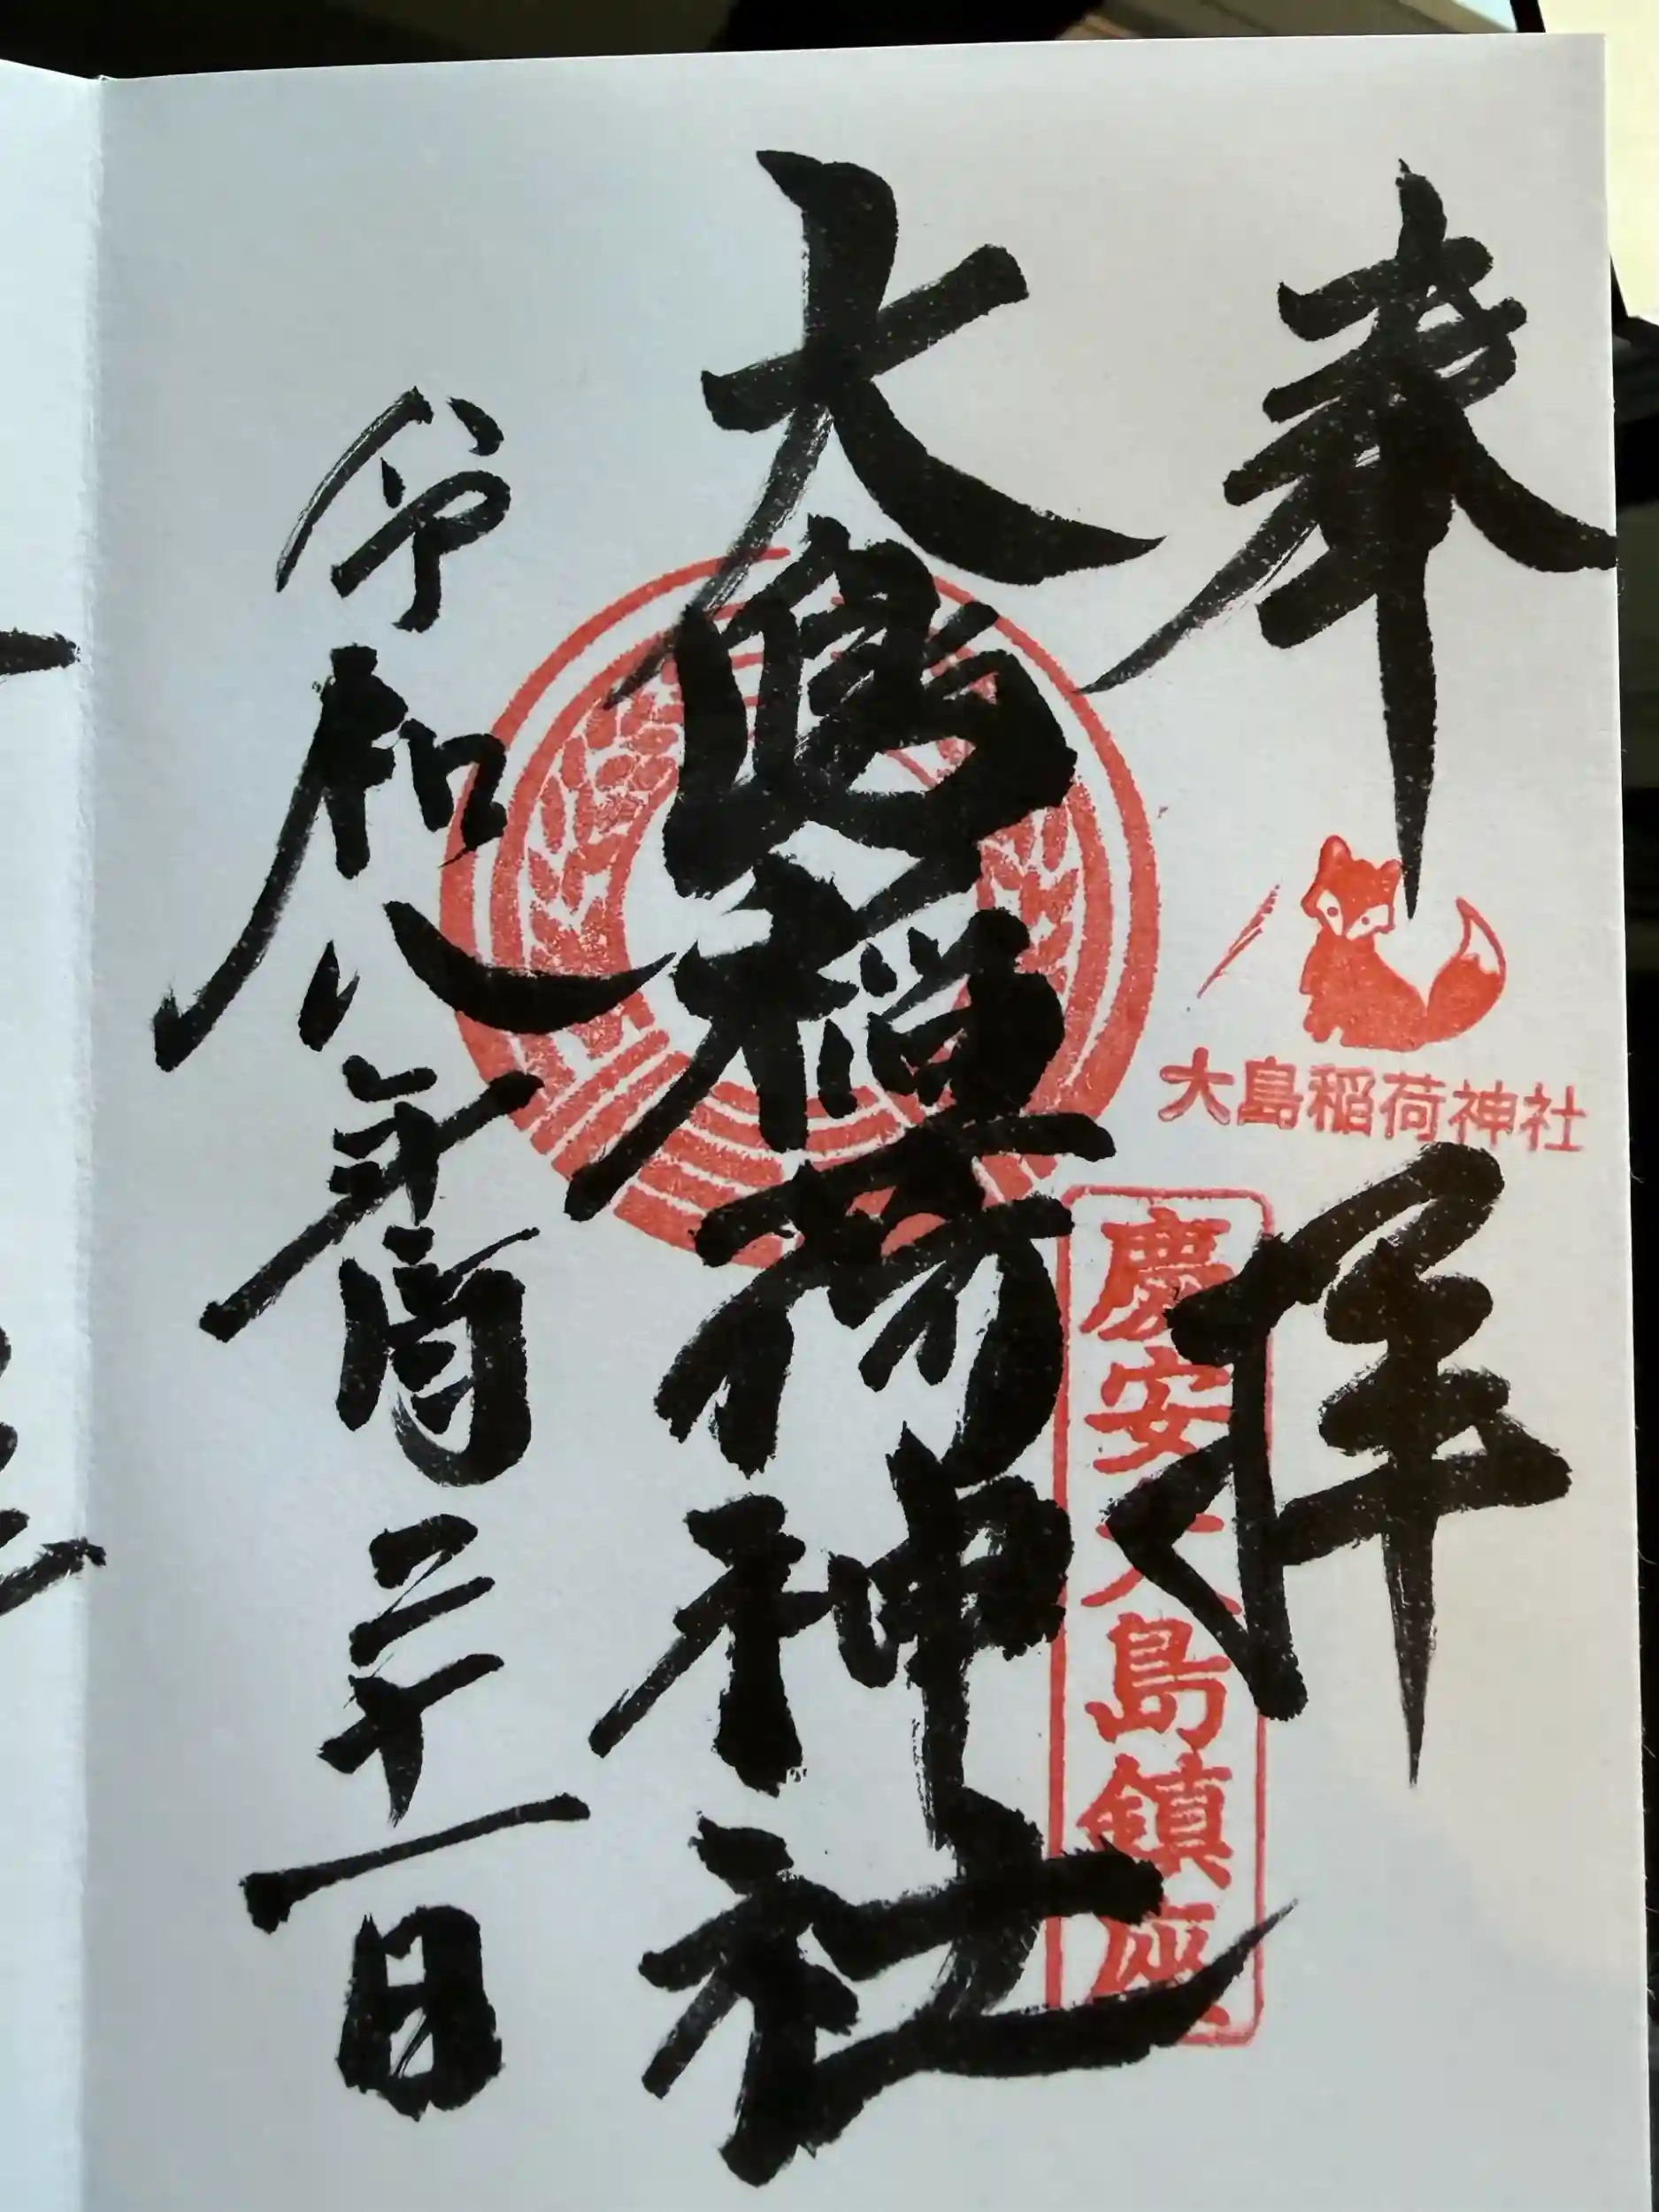 奉拝
大島稲荷神社
慶安大島鎮座
大島稲荷神社
令和八年 月二十一日